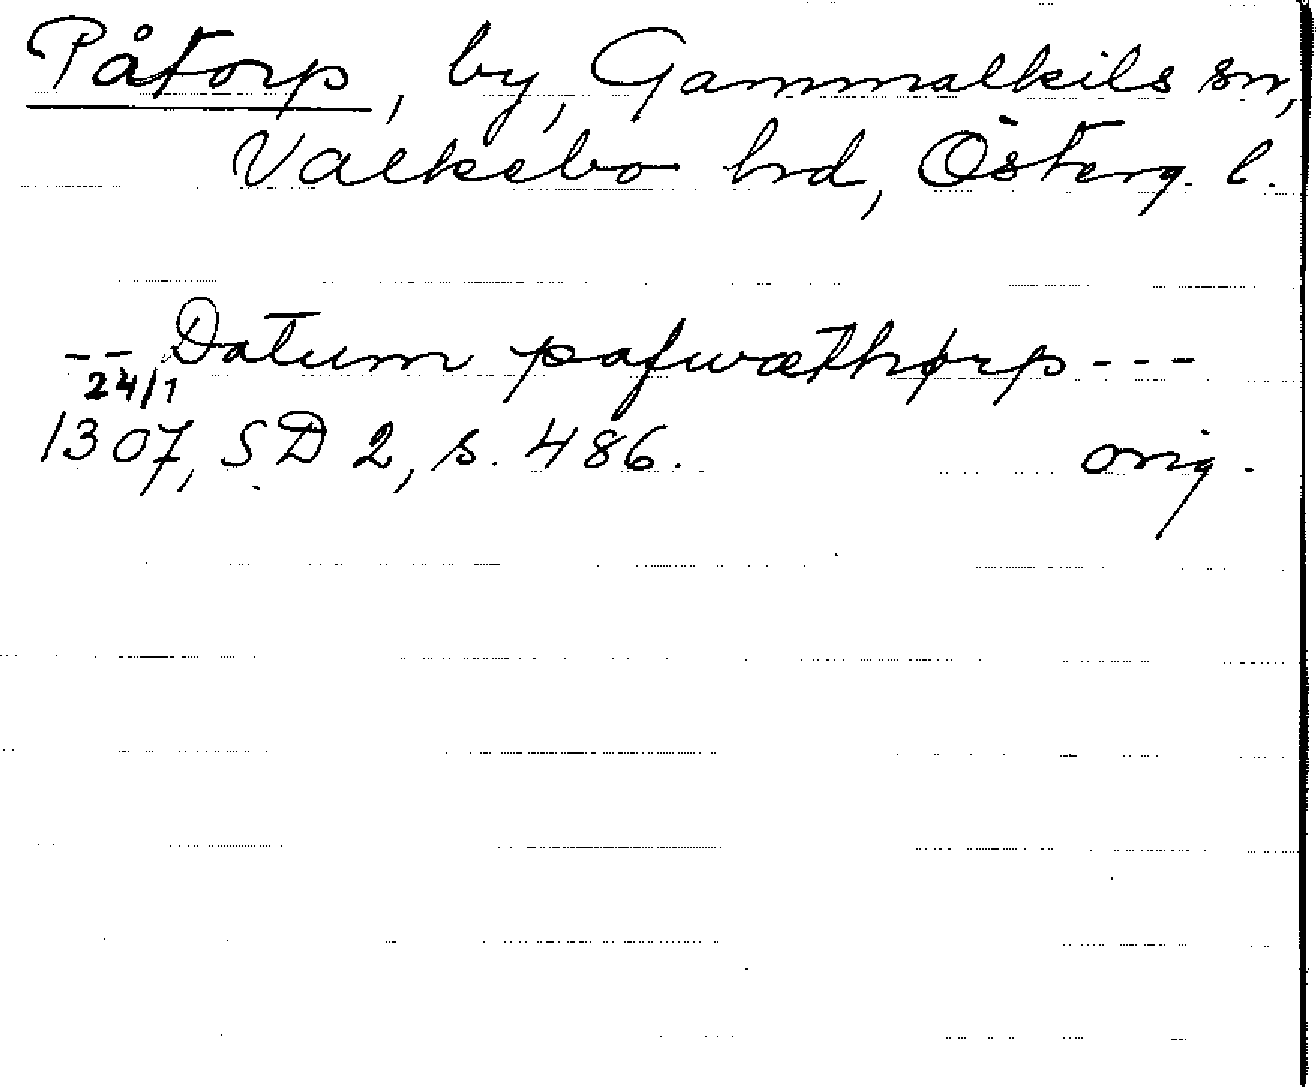 Påtorp, by, Gammalkils sn,
Valkebo hrd, Österg. l.
-- Datum pafwæthørp ---
24/1
1307, SD 2, s. 486. orig.